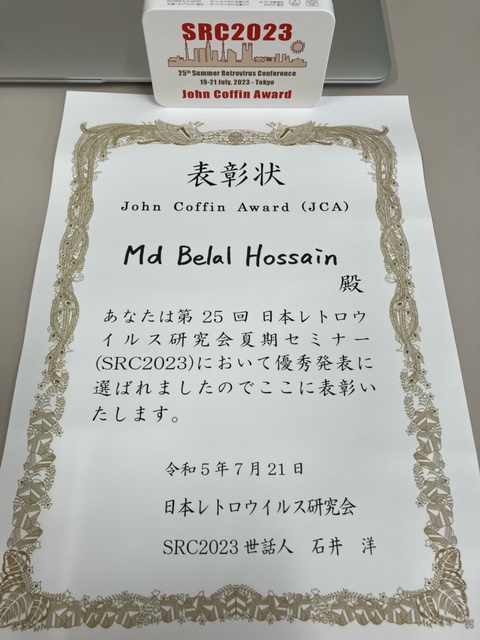 SRC2023
25th Summer Retrovirus Conference
19-21 July, 2023 - Tokyo
John Coffin Award
表彰状
John Coffin Award (JCA)
Md Belal Hossain
殿
あなたは第 25 回 日本レトロウ
イルス研究会夏期セミナー
(SRC2023)において優秀発表に
選ばれましたのでここに表彰い
たします。
令和5年7月21日
日本レトロウイルス研究会
SRC2023 世話人 石井 洋